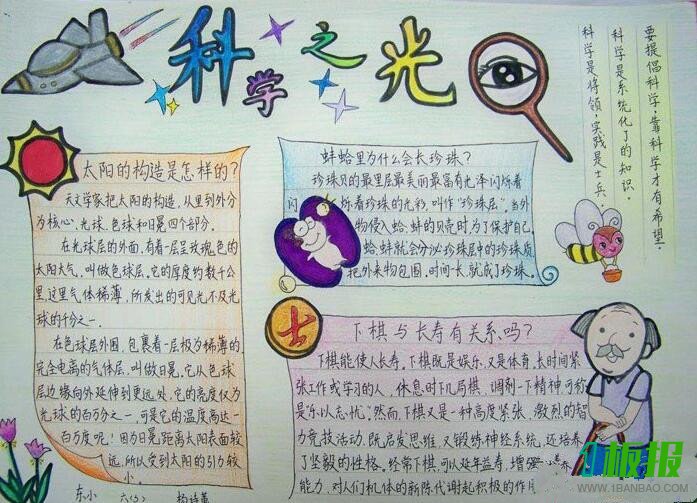 科学之光
要提倡科学，靠科学才有希望。
科学是系统化了的知识。
科学是将领，实践是士兵。
太阳的构造是怎样的？
天文学家把太阳的构造，从里到外分
为核心、光球、色球和日冕四个部分。
在光球层的外面，有着一层呈玫瑰色的
太阳大气，叫做色球层。它的厚度约数千公
里，这里气体稀薄，所发出的可见光不及光
球的千分之一。
在色球层外围，包裹着一层极为稀薄的
完全电离的气体层，叫做日冕，它从色球
层边缘向外延伸到更远处，它的亮度仅为
光球的百万分之一，可是它的温度高达一
百万度呢！因为日冕距离太阳表面较
远，所以受到太阳的引力较
小。
东小
蚌蛤里为什么会长珍珠？
珍珠贝的最里层最美丽最富有光泽闪烁着
闪烁着珍珠的光彩，叫作“珍珠层”。当外
物侵入蛤、蚌的贝壳时，为了保护自己，
蛤、蚌就会分泌珍珠层中的珍珠质
把外来物包围，时间一长，就成了珍珠。
士
下棋与长寿有关系吗？
下棋能使人长寿。下棋既是娱乐，又是体育，长时间紧
张工作或学习的人，休息时下几局棋，调剂一下精神，可称
是乐以忘忧。然而，下棋又是一种高度紧张、激烈的智
力竞技活动，既启发思维，又锻炼神经系统，还培养
了坚毅的性格。经常下棋，可以延年益寿，增强
能力，对人们机体的新陈代谢起积极的作用
板报
WWW.1BANBAO.COM